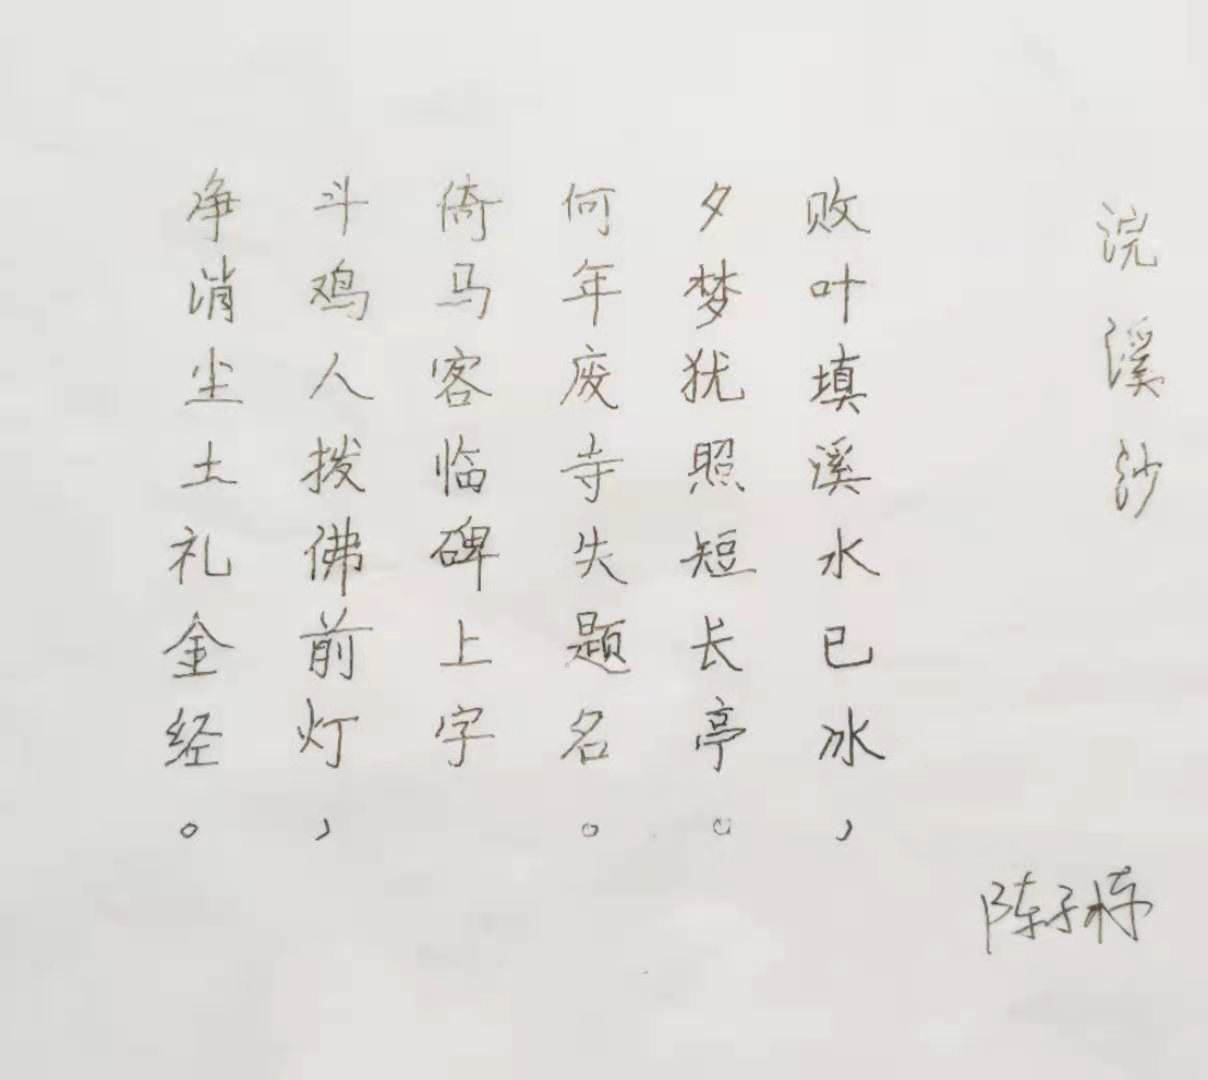 浣溪沙
陈子栋
败叶填溪水已冰，
夕梦犹照短长亭。
何年废寺失题名。
倚马客临碑上字
斗鸡人拨佛前灯，
净消尘土礼金经。